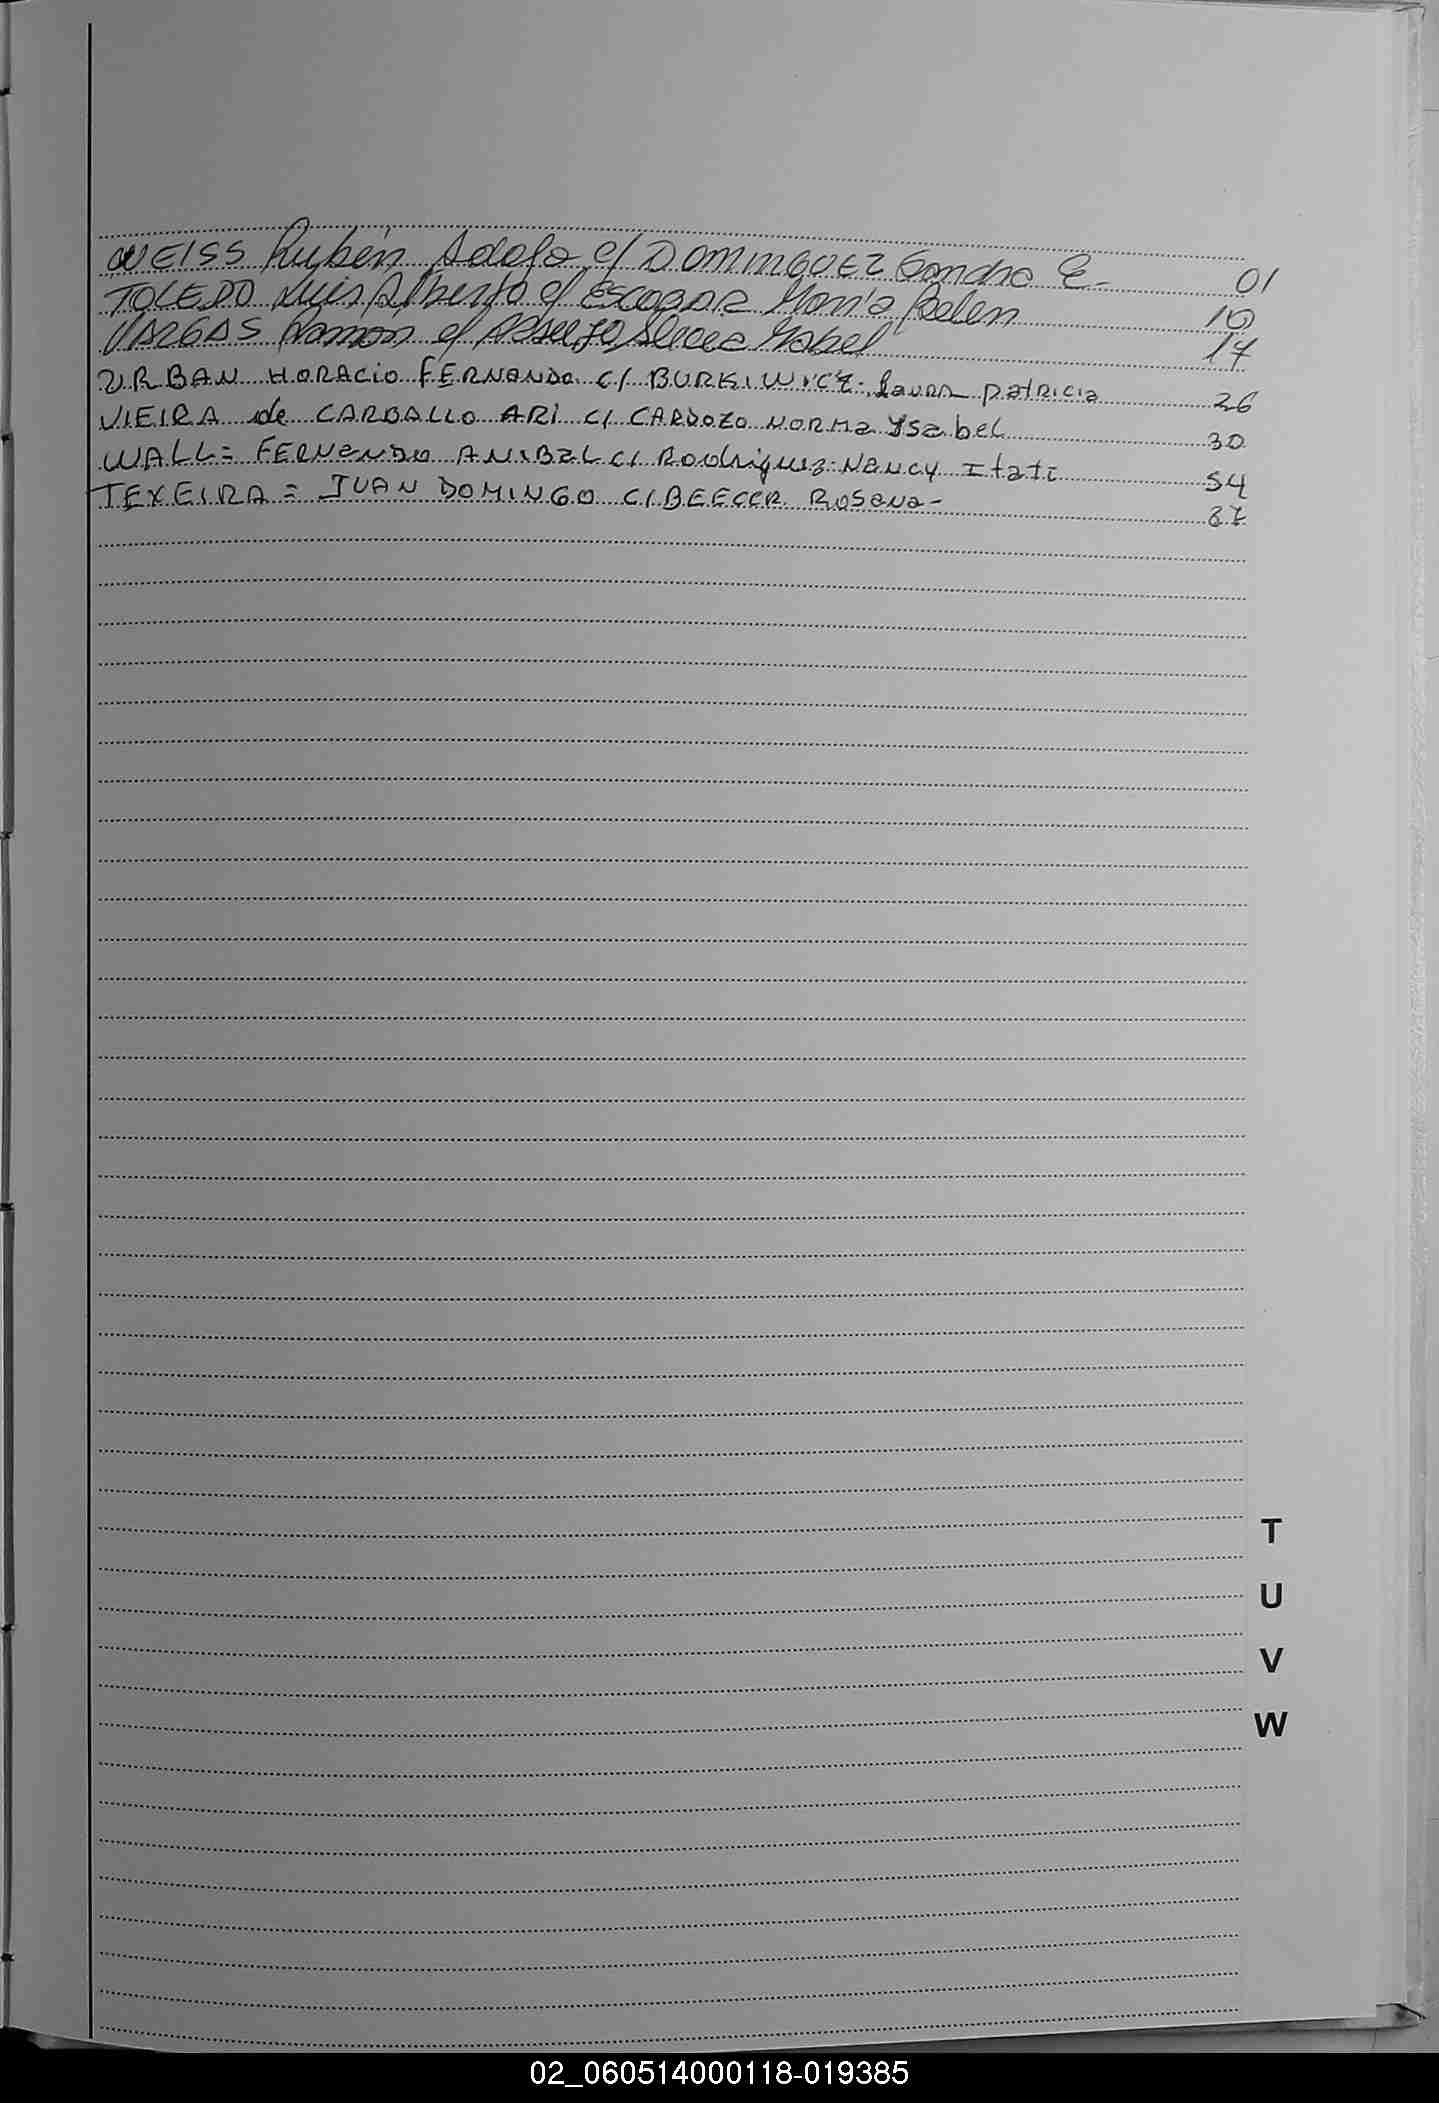 WEISS Rubén Adolfo c/ DOMINGUEZ Sandra E- 01
TOLEDO Luis Alberto c/ ESCOBAR María Belen 10
VARGAS Ramon c/ Mabel 17
URBAN HORACIO FERNANDO c/ BURKIWICZ Laura patricia 26
VIEIRA de CARBALLO ARI c/ CARDOZO NORMA Ysabel 30
WALL= FERNANDO ANIBAL c/ Rodriguez Nancy Itati 54
TEXEIRA = JUAN DOMINGO c/ BEECER Rosana- 87
T
U
V
W
02_060514000118-019385